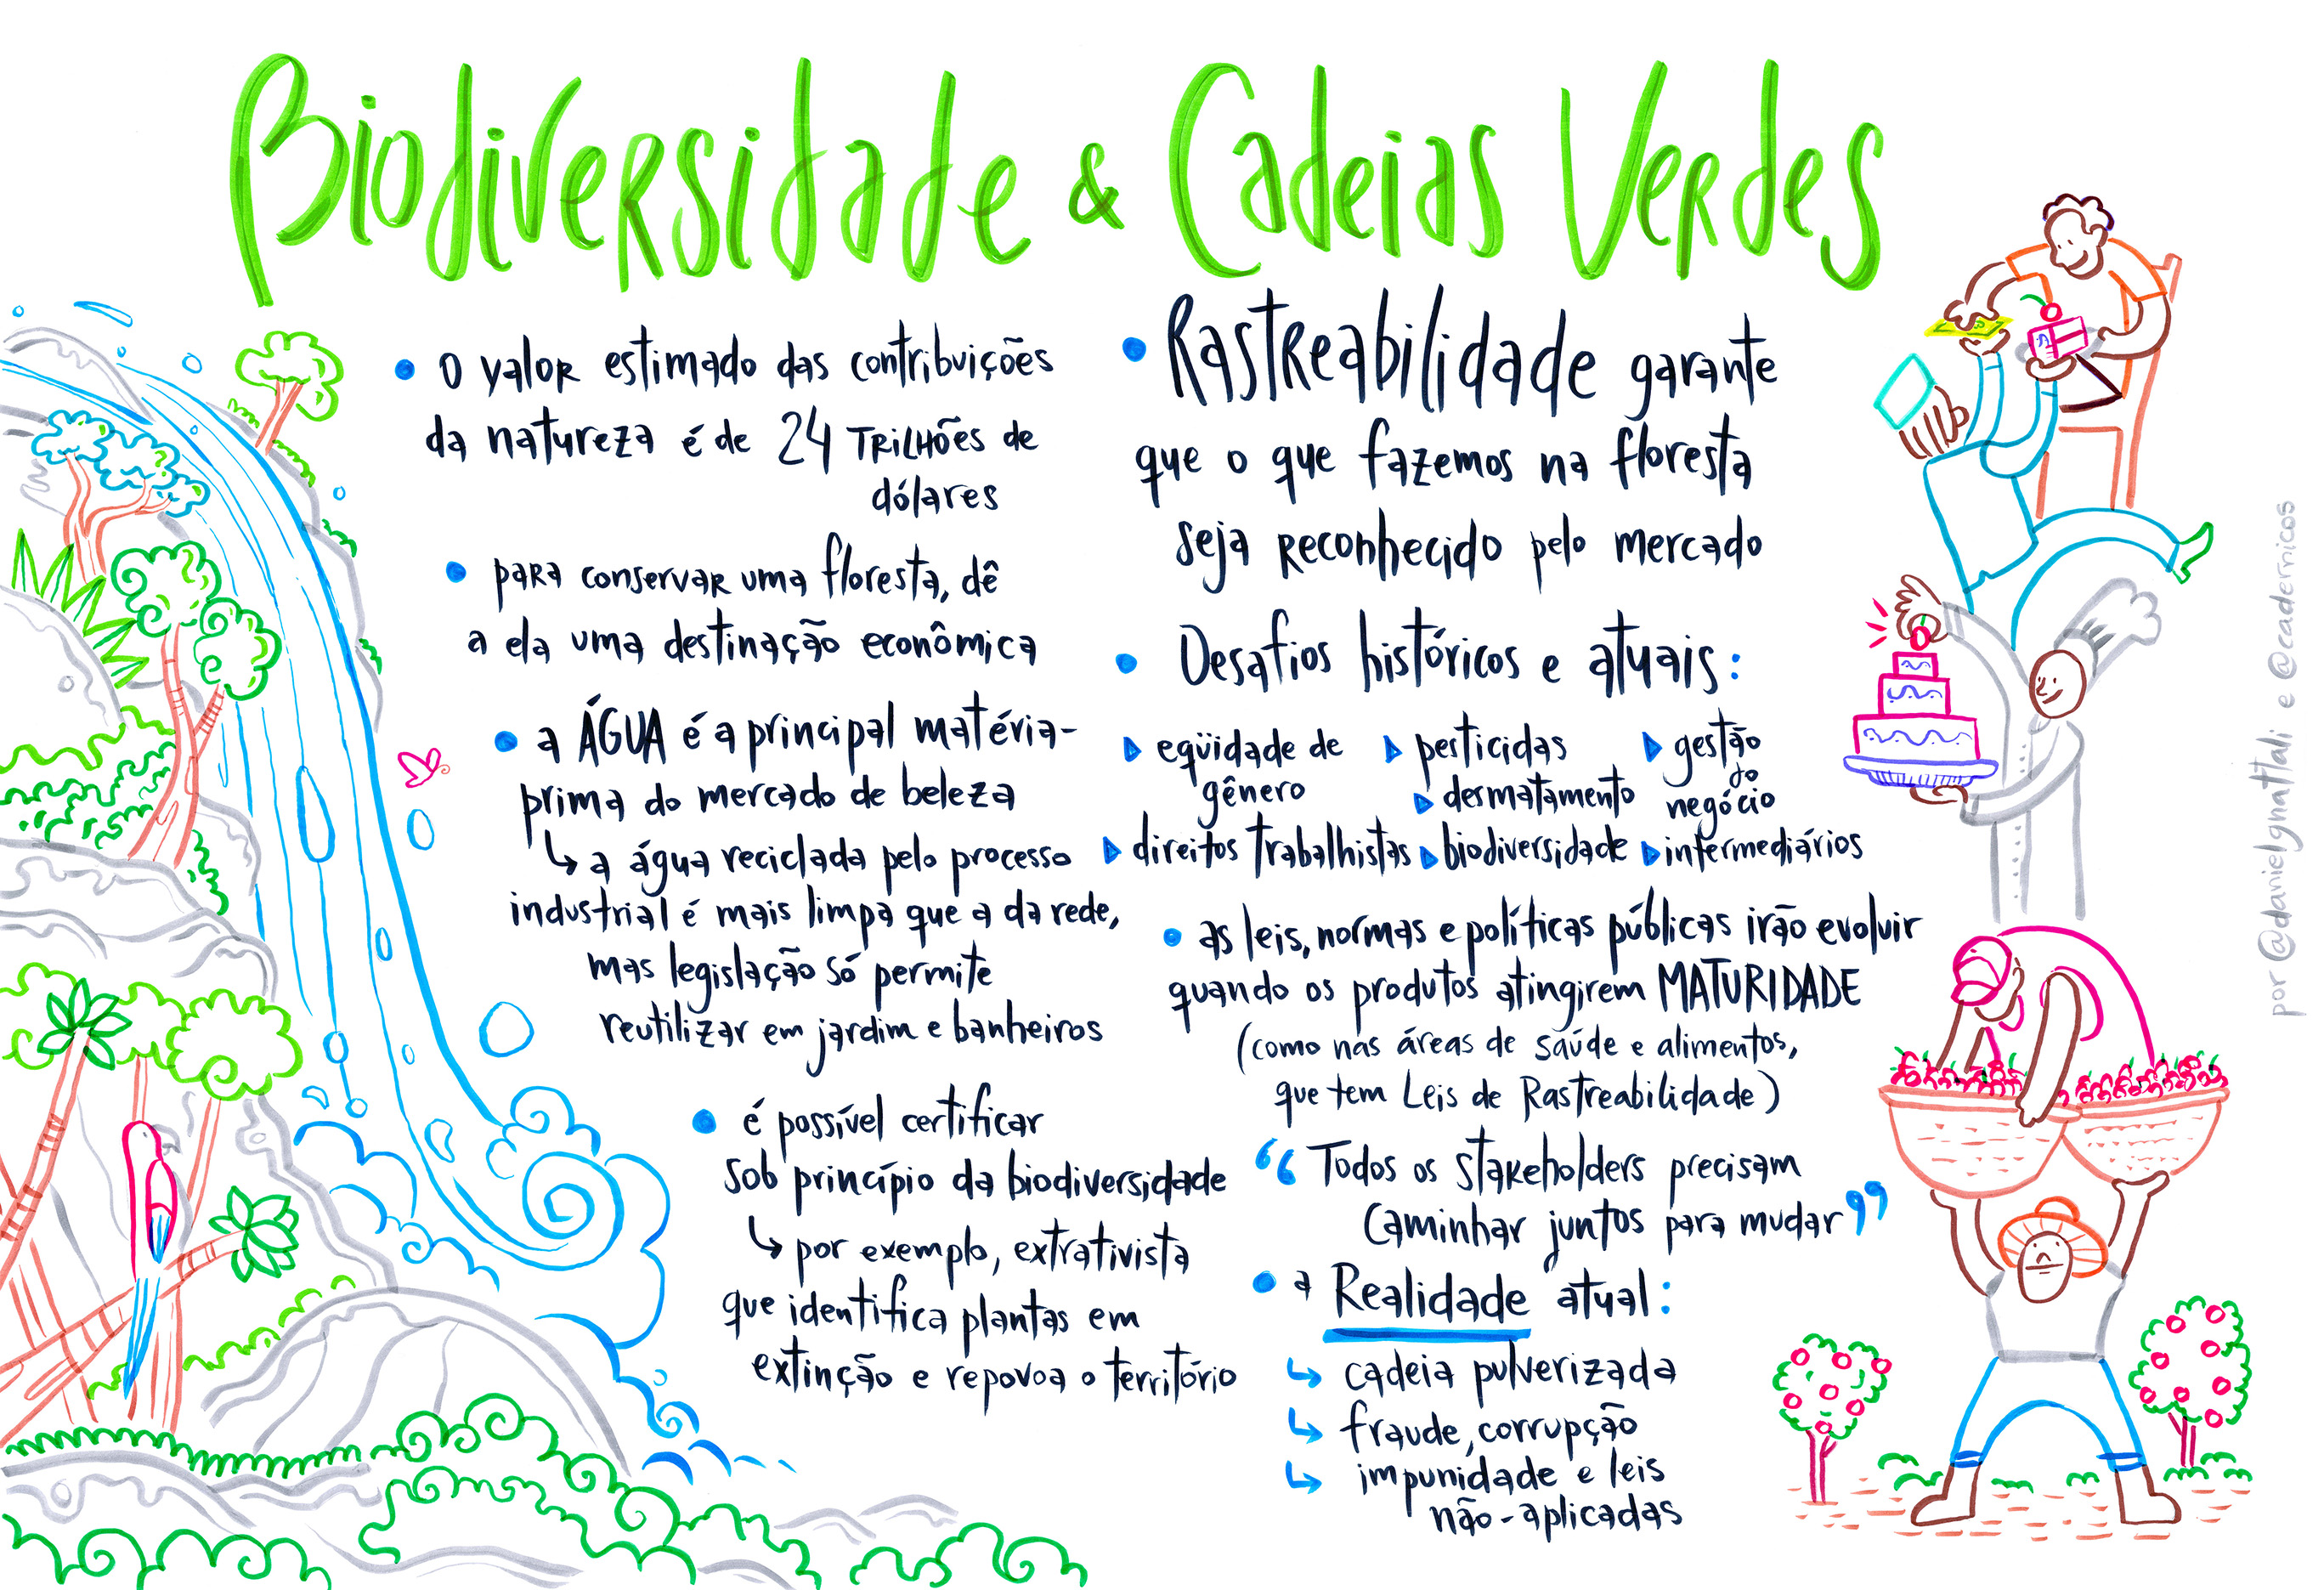 Biodiversidade & Cadeias Verdes
• o valor estimado das contribuições
da natureza é de 24 TRILHÕES de
dólares
• para conservar uma floresta, dê
a ela uma destinação econômica
• a ÁGUA é a principal matéria-
prima do mercado de beleza
↳ a água reciclada pelo processo
industrial é mais limpa que a da rede,
mas legislação só permite
reutilizar em jardim e banheiros
• é possível certificar
sob princípio da biodiversidade
↳ por exemplo, extrativista
que identifica plantas em
extinção e repovoa o território
• Rastreabilidade garante
que o que fazemos na floresta
seja reconhecido pelo mercado
• Desafios históricos e atuais:
▷ eqüidade de
gênero
▷ pesticidas
▷ desmatamento
▷ gestão
do
negócio
▷ direitos trabalhistas ▷ biodiversidade ▷ intermediários
• as leis, normas e políticas públicas irão evoluir
quando os produtos atingirem MATURIDADE
(como nas áreas de saúde e alimentos,
que tem Leis de Rastreabilidade)
“Todos os stakeholders precisam
caminhar juntos para mudar”
• a Realidade atual:
↳ cadeia pulverizada
↳ fraude, corrupção
↳ impunidade e leis
não-aplicadas
por @danielgnattali e @cadernicos